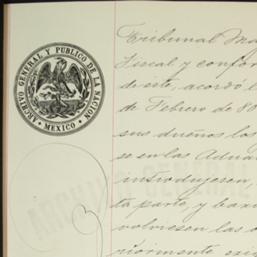 ARCHIVO GENERAL Y PUBLICO DE LA NACION
• MEXICO •
Tribunal Ma
Fiscal y confor
diente, acordó l
de Febrero de 80
sus dueños los
se en las Adua
introdujesen
ta parte, y baxi
volviesen las
riormente exi